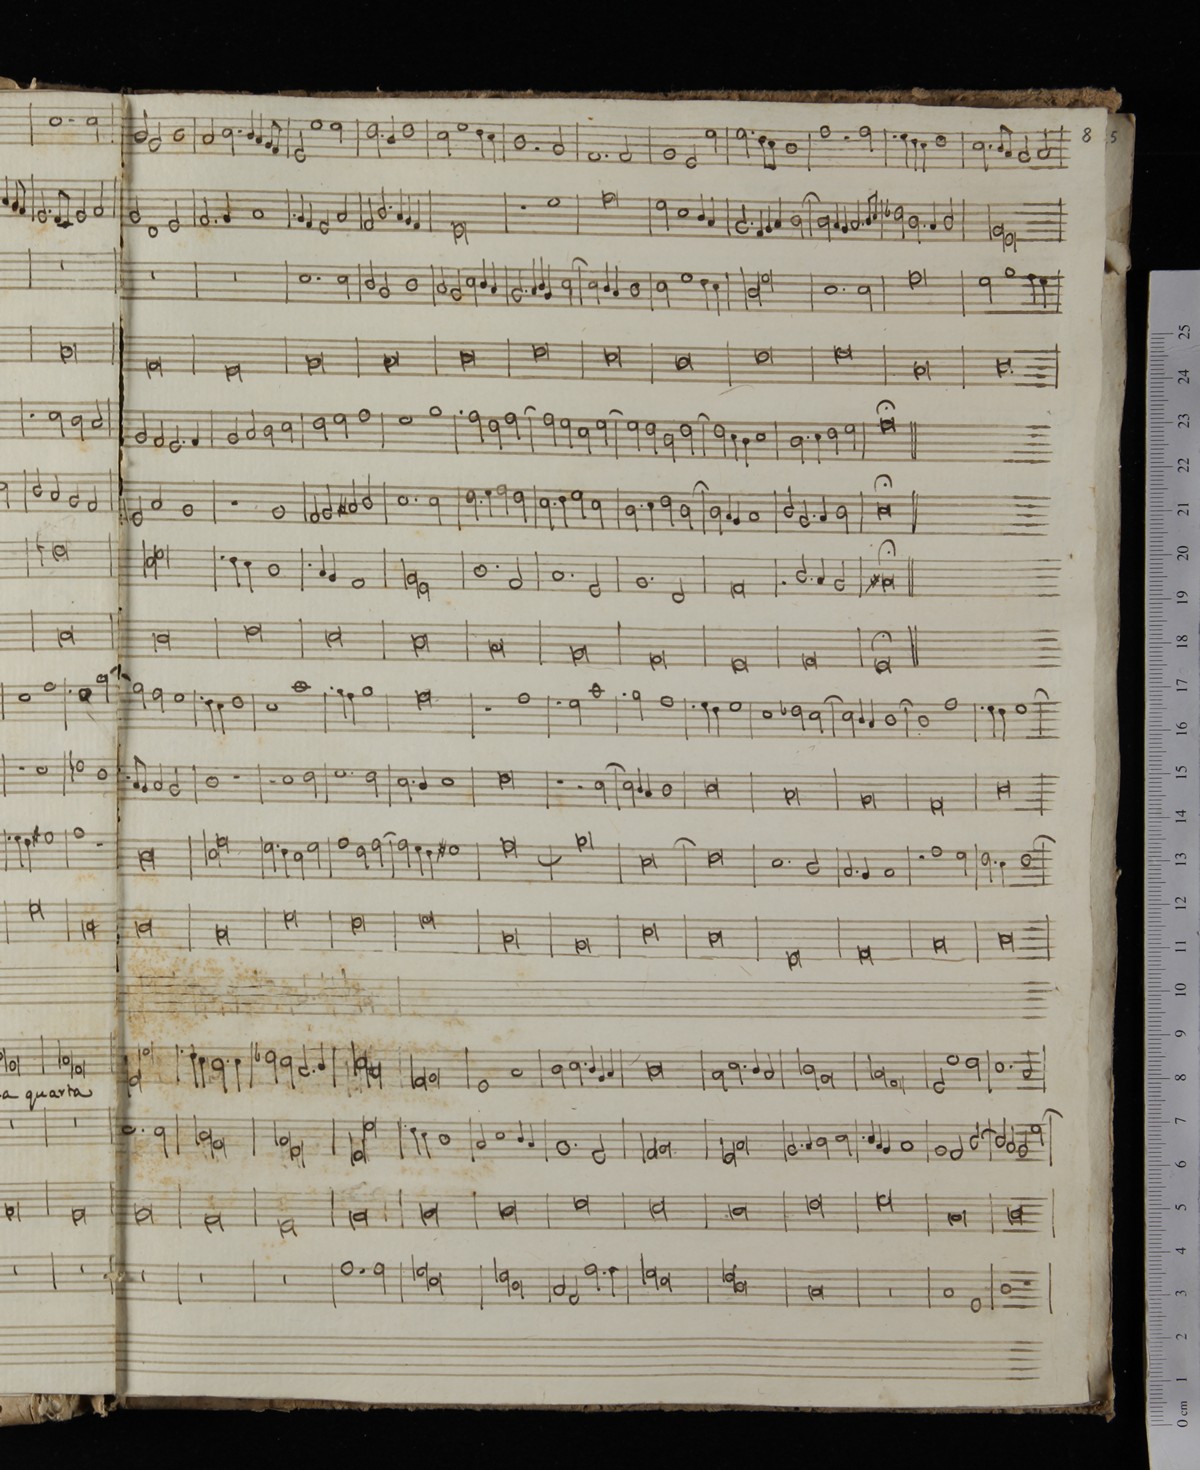 8 5
a quarta
25
24
23
22
21
20
19
18
17
16
15
14
13
12
11
10
9
8
7
6
5
4
3
2
1
0 cm